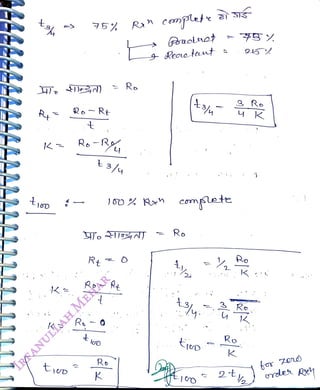 t3/4 ⇒ 75% Rxn complete हो गई
→ Product = 75%
→ Reactant = 25%
प्रा० सान्द्रता = R₀
Rt = R₀ - Rt / t
K = R₀ - R₀/4 / t3/4
t3/4 = 3/4 R₀/K
t100 :- 100% Rxn complete
प्रा० सान्द्रता = R₀
Rt = 0
K = R₀ - Rt / t
K = R₀ - 0 / t100
t100 = R₀/K
t1/2 = 1/2 R₀/K
t3/4 = 3/4 R₀/K
t100 = R₀/K
t100 = 2t1/2
for zero order Rxn
IRSANULLAH MENAR